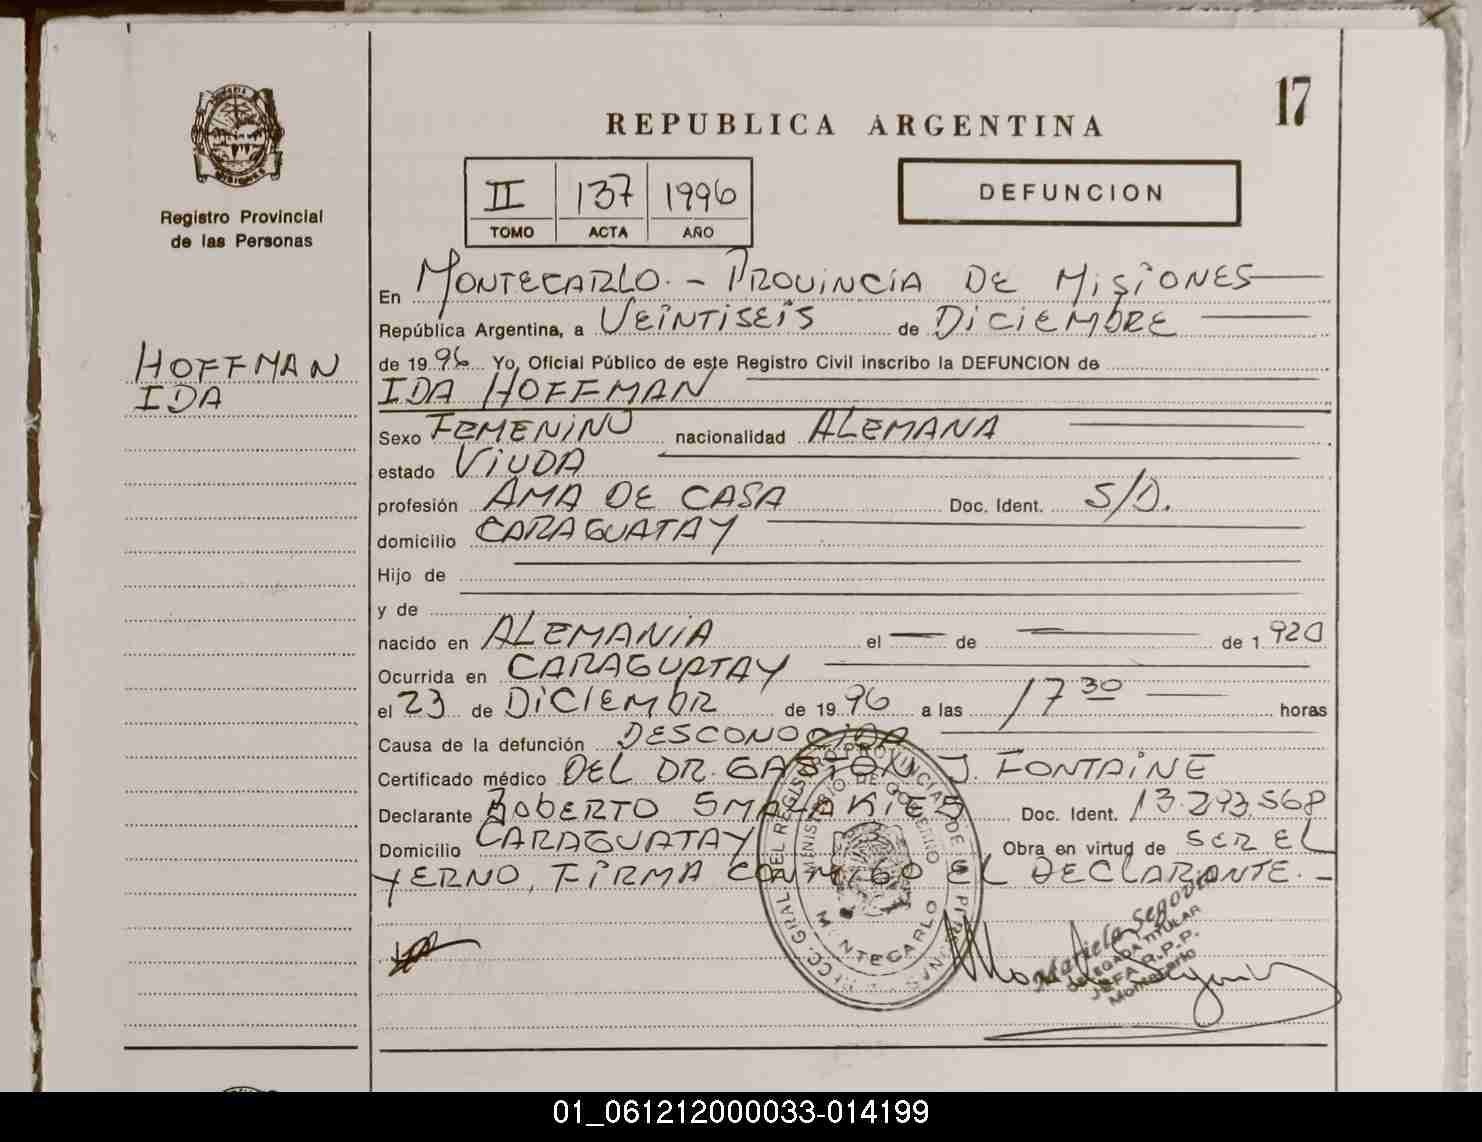 17
REPUBLICA ARGENTINA
MISIONES
Registro Provincial
de las Personas
II 137 1996
TOMO ACTA AÑO
DEFUNCION
HOFFMAN
IDA
En MONTECARLO. - PROVINCIA DE MISIONES
República Argentina, a VEINTISEIS de DICIEMBRE
de 1996 Yo, Oficial Público de este Registro Civil inscribo la DEFUNCION de
IDA HOFFMAN
Sexo FEMENINO nacionalidad ALEMANA
estado VIUDA
profesión AMA DE CASA Doc. Ident. S/D.
domicilio CARAGUATAY
Hijo de
y de
nacido en ALEMANIA el — de — de 1920
Ocurrida en CARAGUATAY
el 23 de DICIEMBR de 1996 a las 17 30 horas
Causa de la defunción DESCONOCIDA
Certificado médico DEL DR. GASTON J. FONTAINE
Declarante ROBERTO Doc. Ident. 13.293.568
Domicilio CARAGUATAY Obra en virtud de SER EL
YERNO, FIRMA CONMIGO EL DECLARANTE. -
MINISTERIO DE GOBIERNO
MONTECARLO
Mariela Segovia
DELEGADA TITULAR
JEFA R.P.P.
Montecarlo
01_061212000033-014199